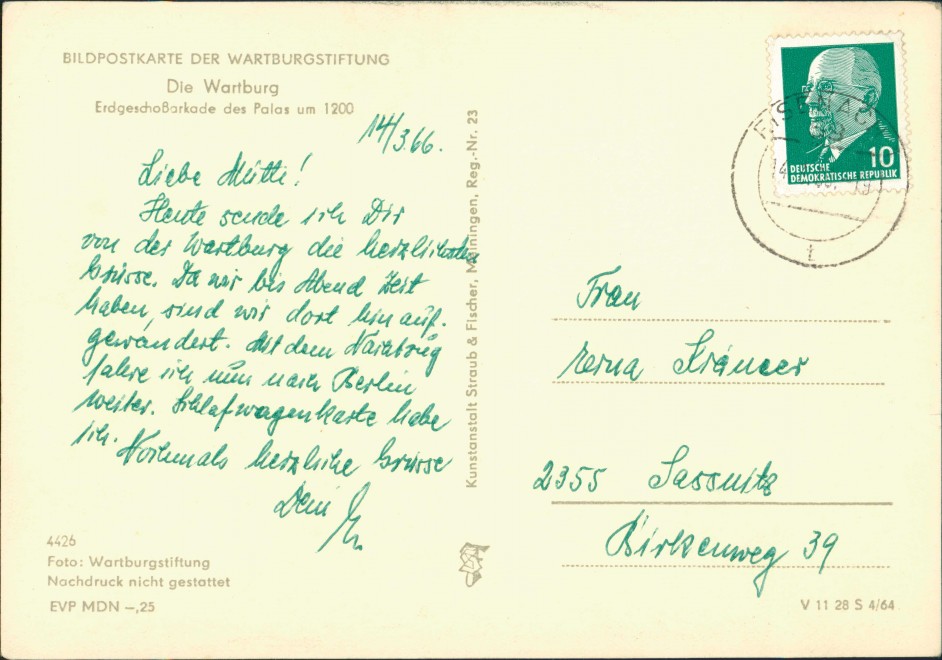 BILDPOSTKARTE DER WARTBURGSTIFTUNG
Die Wartburg
Erdgeschoßarkade des Palas um 1200
14/3.66.
Liebe Mutti!
Heute sende ich Dir
von der Wartburg die herzlichsten
Grüsse. Da wir bis Abend Zeit
haben, sind wir dort hinauf-
gewandert. Mit dem Nachtzug
fahre ich nun nach Berlin
weiter. Schlafwagenkarte habe
ich. Nochmals herzliche Grüsse
Dein
4426
Foto: Wartburgstiftung
Nachdruck nicht gestattet
EVP MDN –,25
Kunstanstalt Straub & Fischer, Meiningen, Reg.-Nr. 23
EISENAC
10
DEUTSCHE
DEMOKRATISCHE REPUBLIK
Frau
Erna
2355 Sassnitz
Birkenweg 39
V 11 28 S 4/64